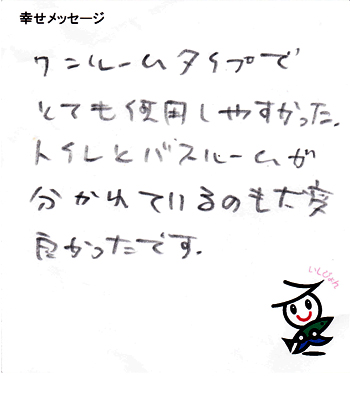 幸せメッセージ
ワンルームタイプで
とても使用しやすかった.
トイレとバスルームが
分かれているのも大変
良かったです.